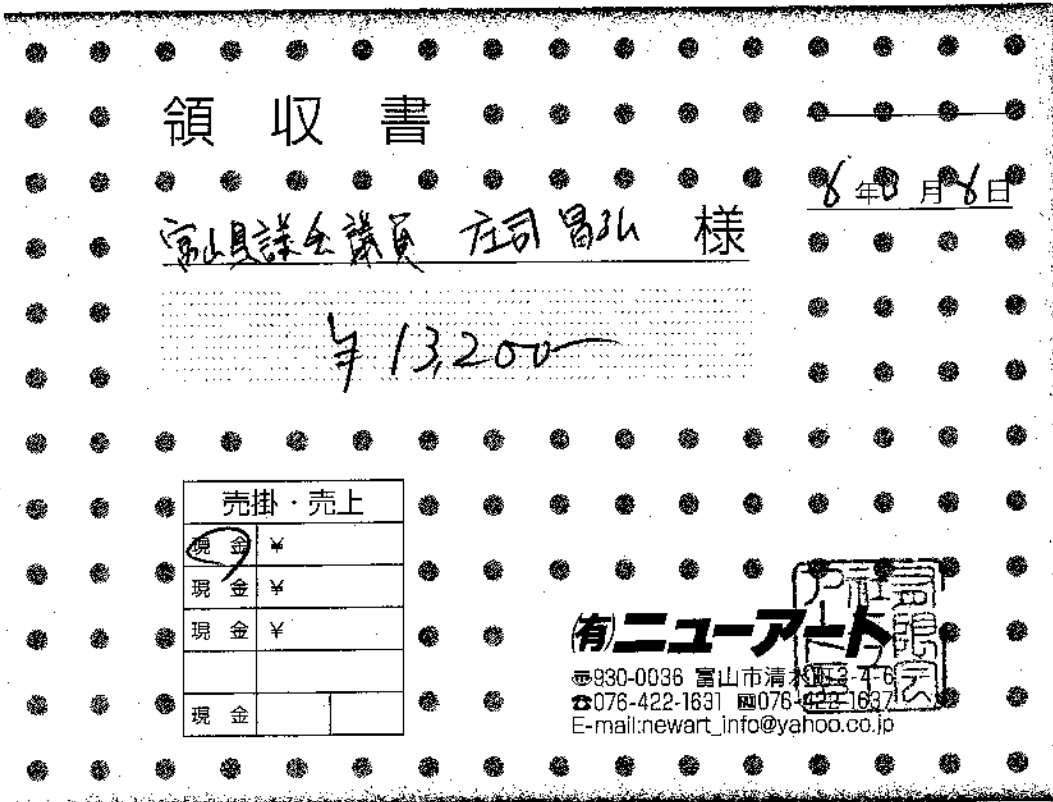 領 収 書
年 月 日
富山県議会議員 庄司 昌弘 様
¥13,200
売掛・売上
現 金 ¥
現 金 ¥
現 金 ¥
現 金
(有)ニューアート
〒930-0036 富山市清水町3-4-6
☎076-422-1631 FAX076-422-1637
E-mail:newart_info@yahoo.co.jp